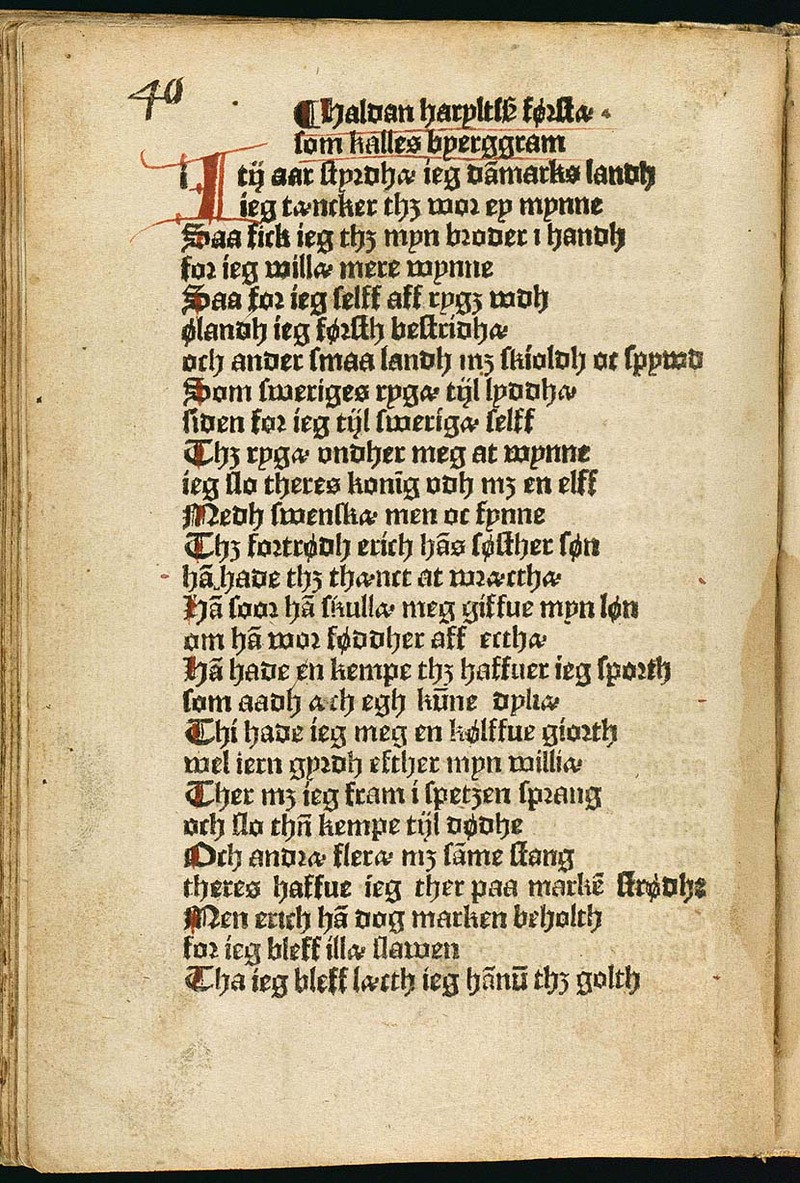 40
¶Haldan haryltzs̄ første
som kalles byerggram
I tij aar styrdhæ ieg dāmarks landh
ieg tæncker thz wor ey mynne
Saa fick ieg thz myn broder i handh
for ieg willæ mere wynne
Saa for ieg selff aff rygz wdh
ølandh ieg førsth bestridhæ
och ander smaa landh mz skioldh oc spywd
Som sweriges rygæ tijl lyddhæ
siden for ieg tijl swerigæ selff
Thz rygæ vndher meg at wynne
ieg slo theres konīg vdh mz en elff
Medh swenskæ men oc fynne
Thz fortrødh erich hās søsther søn
hā hade thz thænct at wræcthæ
Hā soor hā skullæ meg giffue myn løn
om hā wor føddher aff ecthæ
Hā hade en kempe thz haffuer ieg sporth
som aadh æch egh kūne dyliæ
Thi hade ieg meg en kølffue giorth
wel iern gyrdh efther myn williæ
Ther mz ieg fram i spetzen sprang
och slo thn̄ kempe tijl dødhe
Och andræ fleræ mz sāme stang
theres haffue ieg ther paa markē strødhe
Men erich hā dog marken beholth
for ieg bleff illæ slawen
Tha ieg bleff læcth ieg hānū thz golth